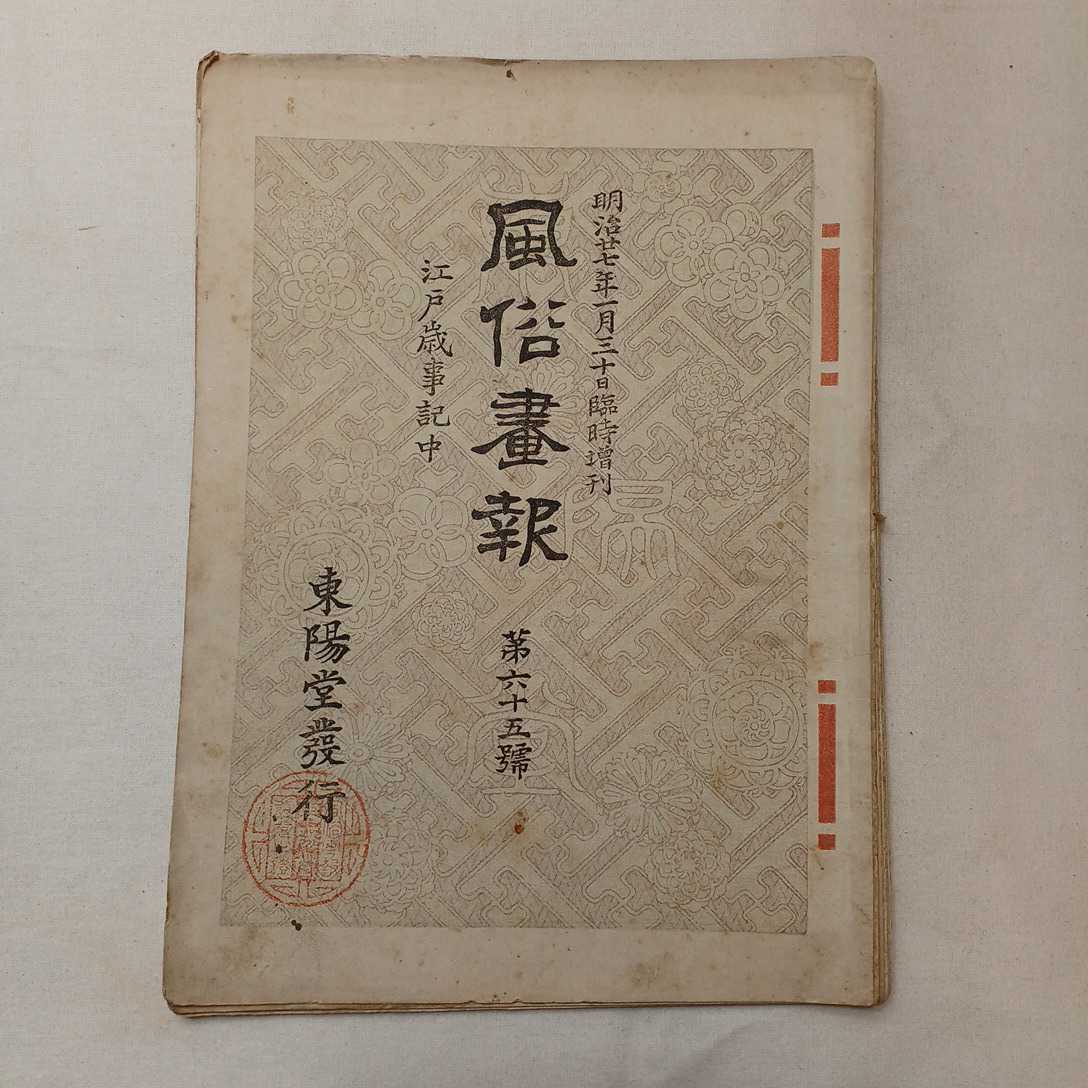 明治廿七年一月三十日臨時增刊
風俗畫報
第六十五號
江戸歳事記中
東陽堂發行